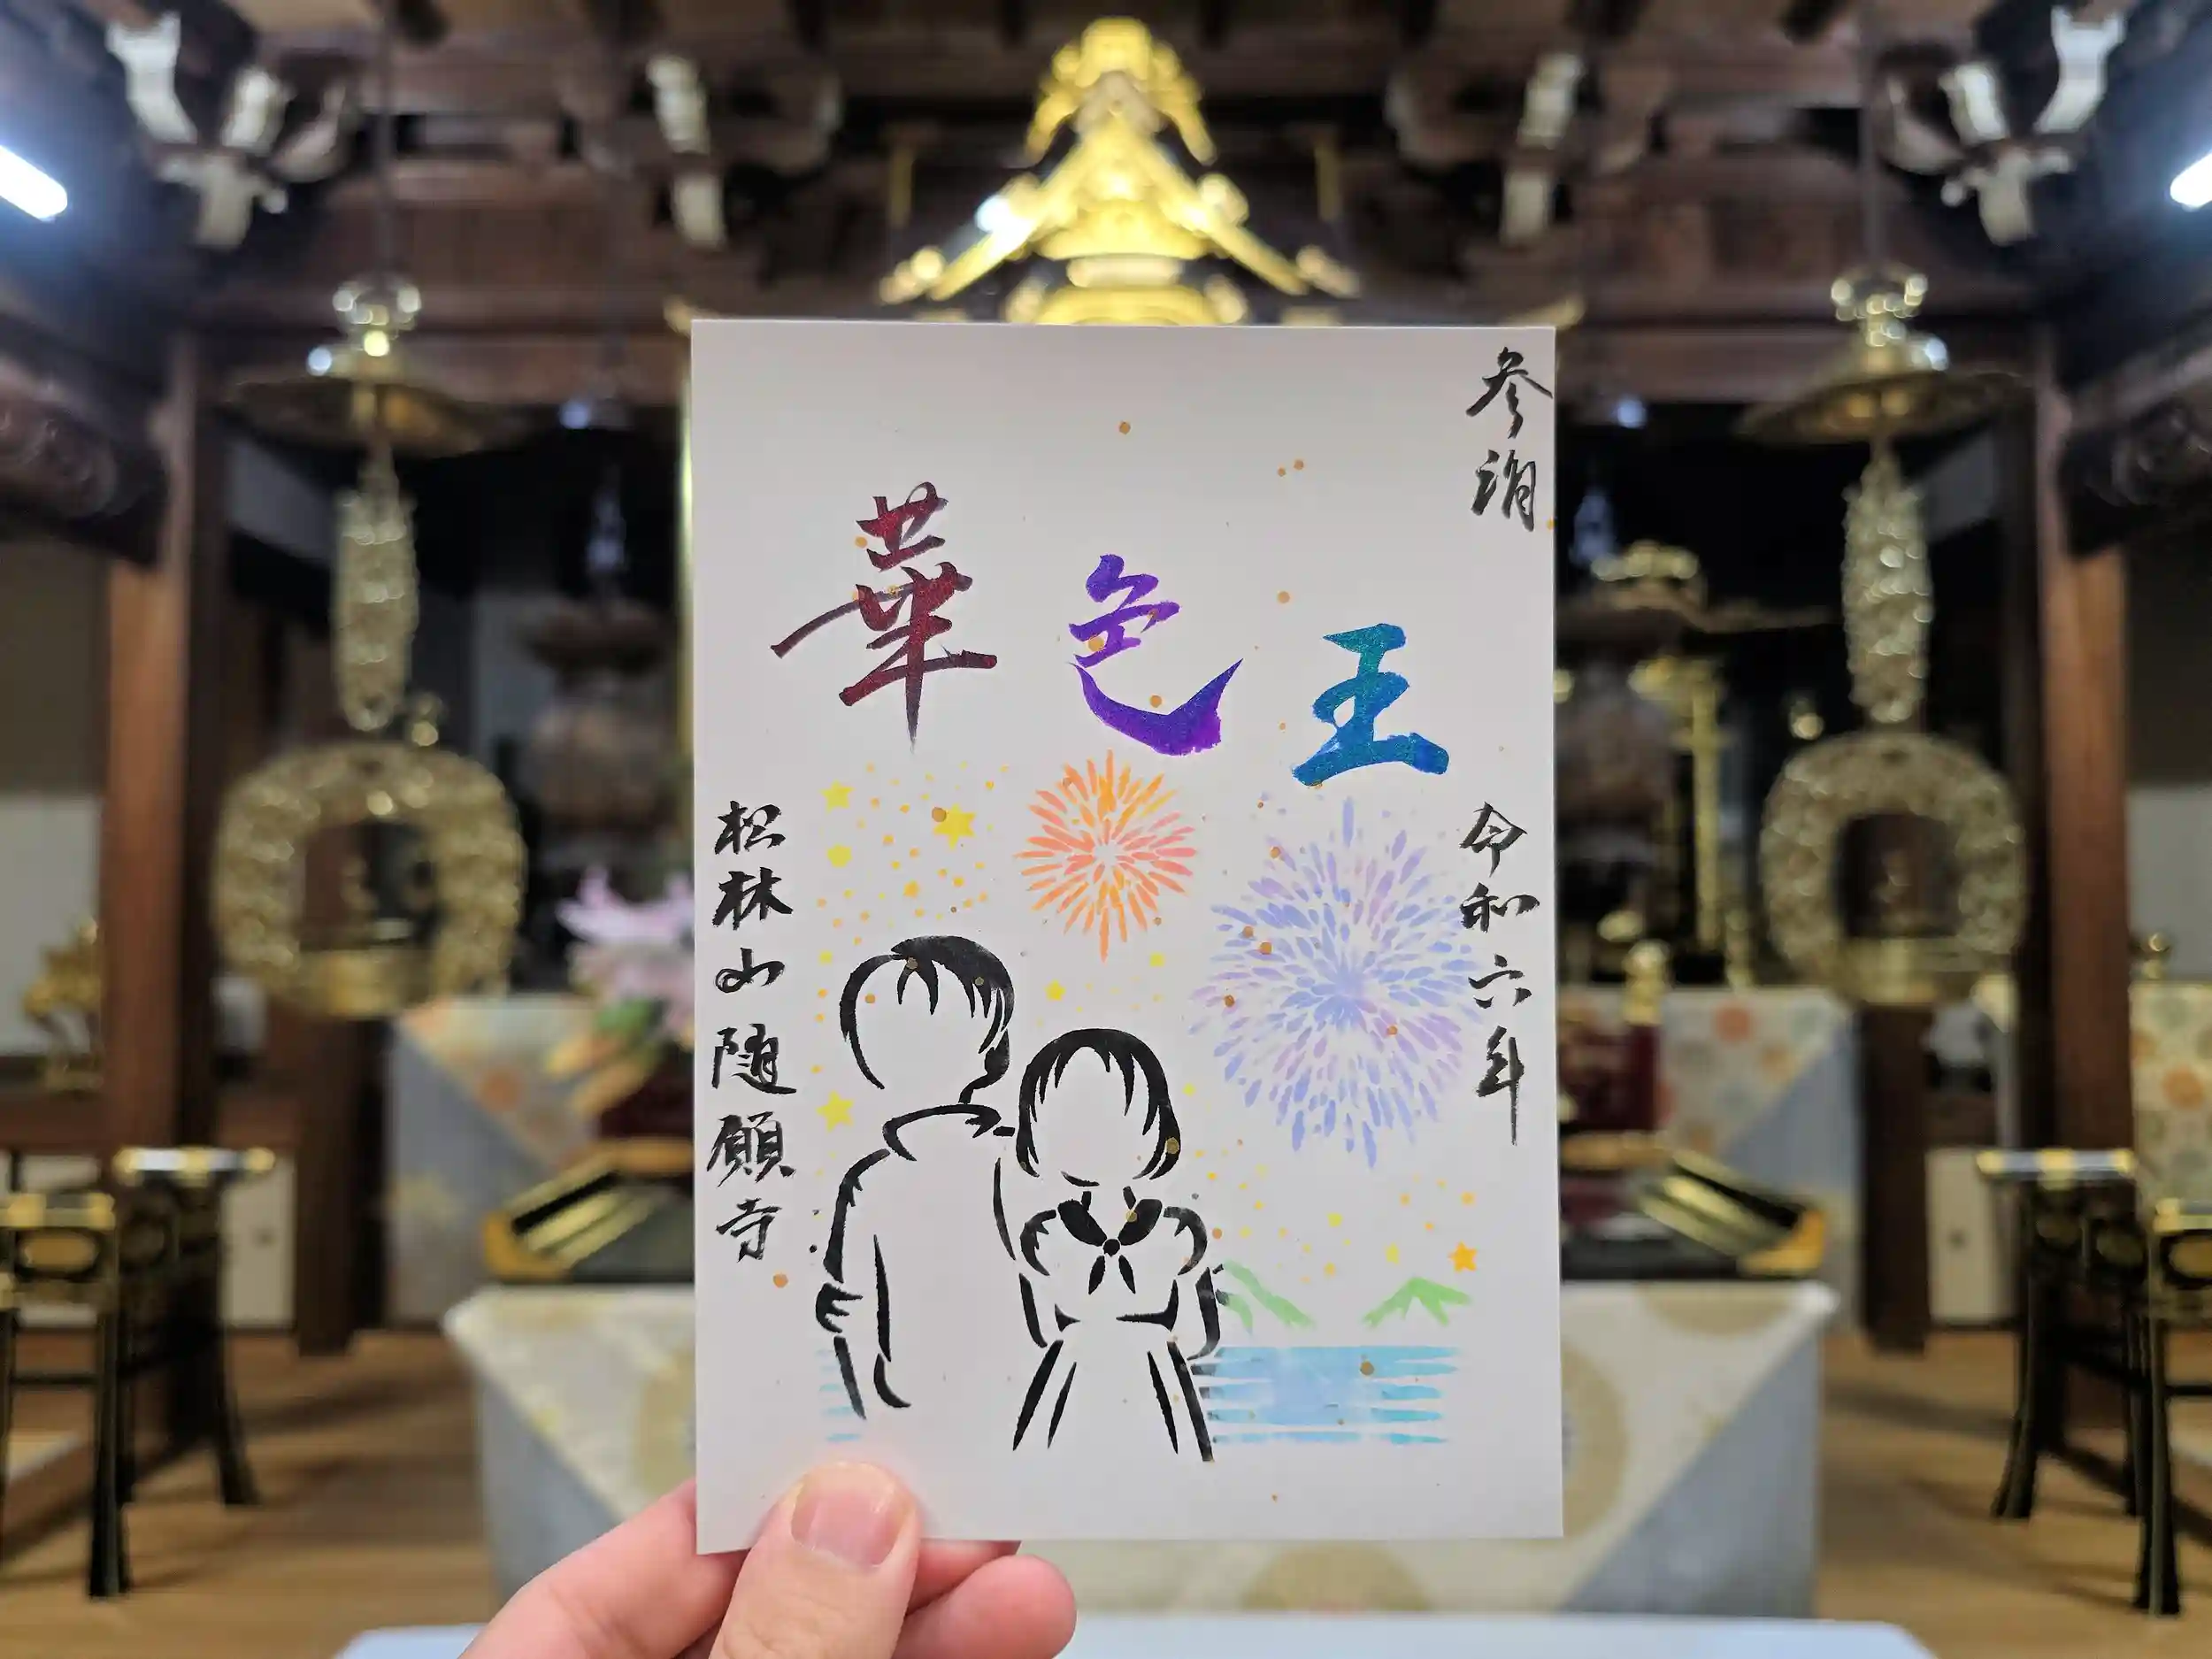 参詣
華色王
令和六年
松林山随願寺